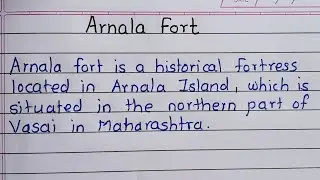 Arnala Fort
Arnala fort is a historical fortress
located in Arnala Island, which is
situated in the northern part of
Vasai in Maharashtra.